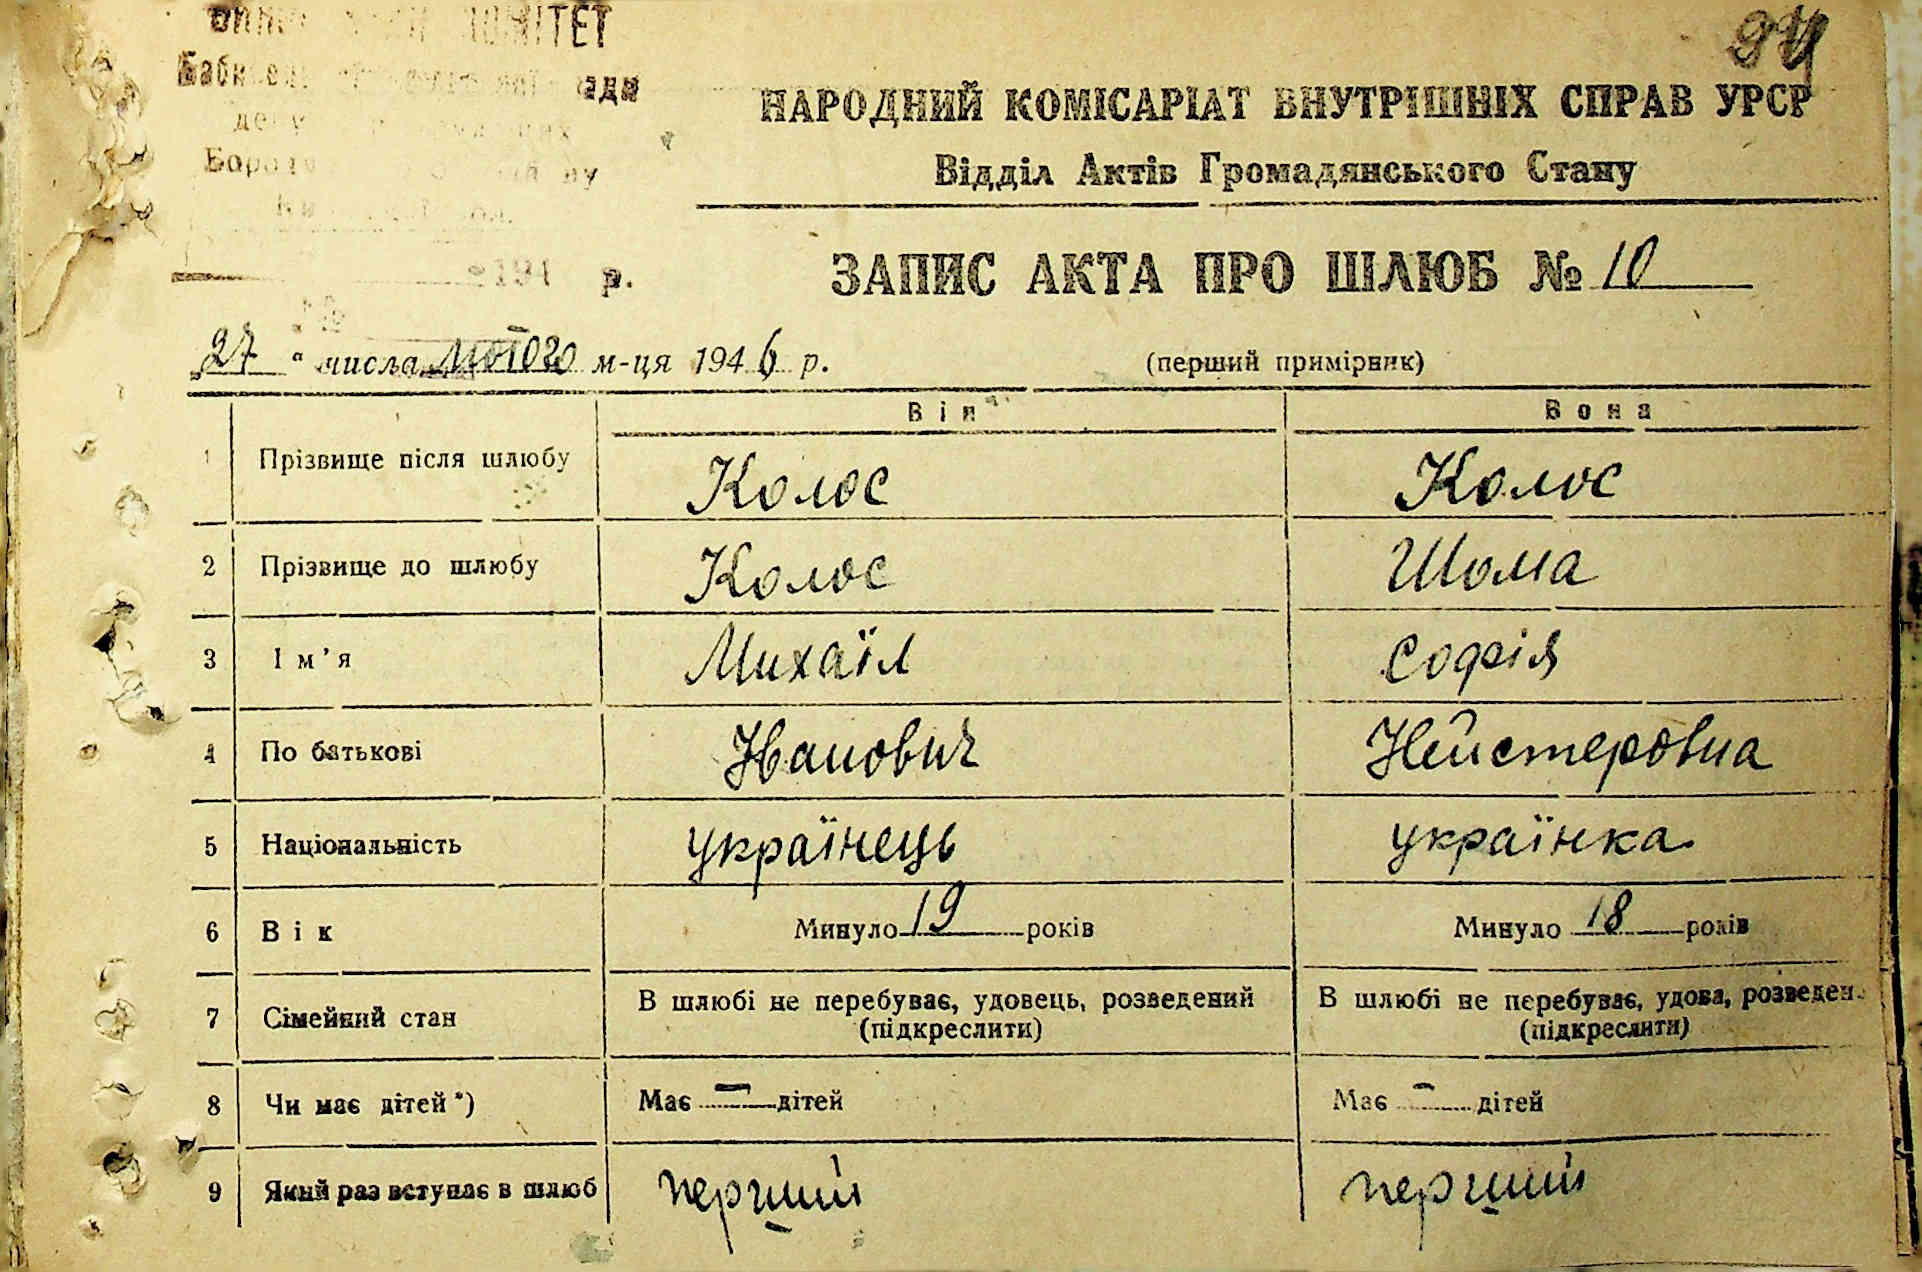 КОМІТЕТ
ради
94
НАРОДНИЙ КОМІСАРІАТ ВНУТРІШНІХ СПРАВ УРСР
Відділ Актів Громадянського Стану
194 р.
ЗАПИС АКТА ПРО ШЛЮБ № 10
27 " числа лютого м-ця 1946 р.
(перший примірник)
Він Вона
1 Прізвище після шлюбу Колос Колос
2 Прізвище до шлюбу Колос Шома
3 Ім'я Михаїл Софія
4 По батькові Иванович Нейстеровна
5 Національність українець українка
6 Вік Минуло 19 років Минуло 18 років
7 Сімейний стан В шлюбі не перебуває, удовець, розведений В шлюбі не перебуває, удова, розведен
(підкреслити) (підкреслити)
8 Чи має дітей*) Має — дітей Має — дітей
9 Який раз вступає в шлюб перший перший